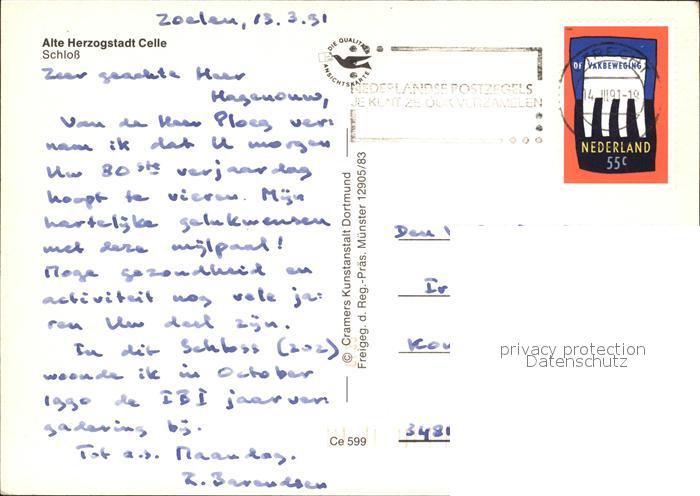 Zoelen, 13.3.91
Alte Herzogstadt Celle
Schloß
Zeer geachte Heer
Hagenouw,
Van de Heer Ploeg ver-
nam ik dat U morgen
Uw 80ste verjaardag
hoopt te vieren. Mijn
hartelijke gelukwensen
met deze mijlpaal!
Moge gezondheid en
activiteit nog vele ja-
ren Uw deel zijn.
In dit Schloss (202)
woonde ik in October
1990 de IBI jaarver-
gadering bij.
Tot a.s. Maandag.
Z. Barendsen
DIE QUALITÄTS
ANSICHTSKARTE
NEDERLANDSE POSTZEGELS
JE KUNT ZE OOK VERZAMELEN
DE VAKBEWEGING
14.III.91-19
NEDERLAND
55c
© Cramers Kunstanstalt Dortmund
Freigeg. d. Reg.-Präs. Münster 12905/83
Ce 599
Den
Ir
3481
privacy protection
Datenschutz